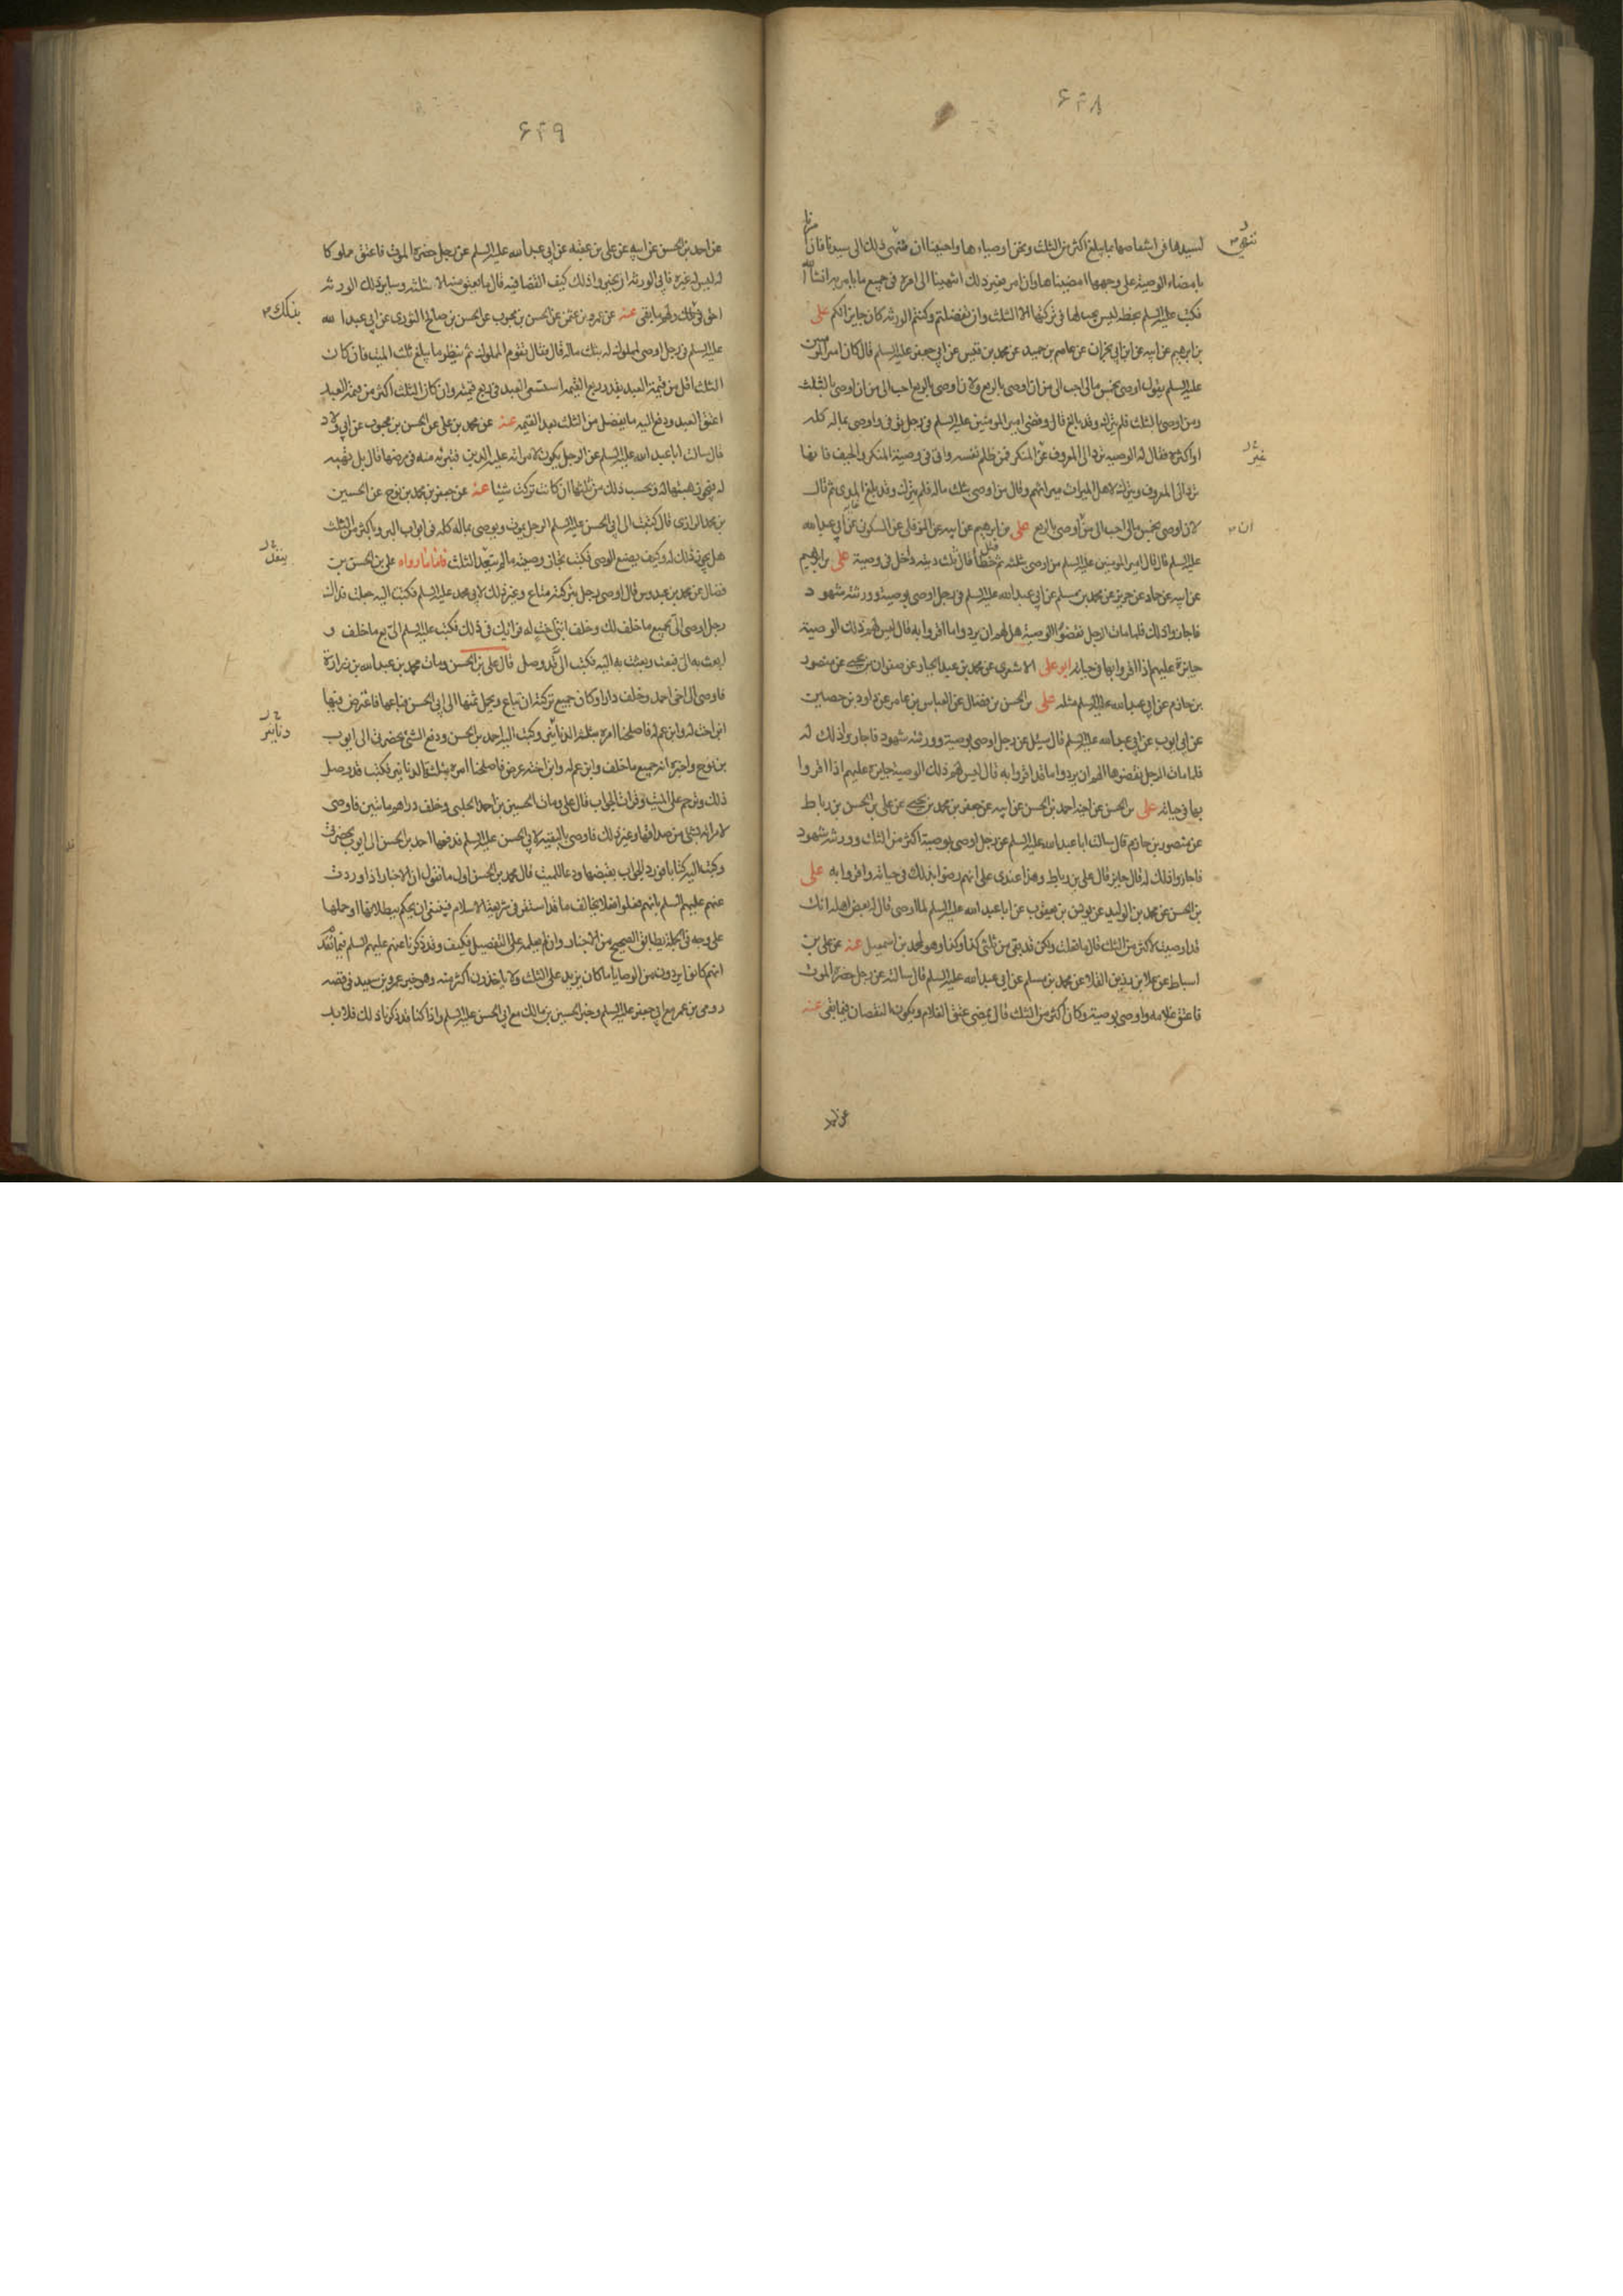 ۶۴۸
لسيدها فى اشقاصها بما يبلغ اكثر من الثلث ونحن اوصياءها واحببنا ان ننهى ذلك الى سيدنا فان امرنا
بامضاء الوصية على وجهها امضيناها وان امر بغير ذلك انتهينا الى امره فى جميع ما يامر به انشاء الله
فكتب عليه السلم بخطه ليس يجب لها فى تركتها الا الثلث وان تفضلتم وكنتم الورثه كان جايزا لكم على
بن ابرهيم عن ابيه عن ابن ابى نجران عن عاصم بن حميد عن محمد بن قيس عن ابى جعفر عليه السلم قال كان امير المومنين
عليه السلم يقول اوصى بخمس مالى احب الى من ان اوصى بالربع ولان اوصى بالربع احب الى من ان اوصى بالثلث
ومن اوصى بالثلث فلم يترك وقد بالغ قال وقضى امير المومنين عليه السلم فى رجل توفى واوصى بماله كله
او اكثره فقال له الوصيه ترد الى المعروف عن المنكر فمن ظلم نفسه واتى فى وصيته المنكر والحيف فانها
ترد الى المعروف ويترك لاهل الميراث ميراثهم وقال من اوصى بثلث ماله فلم يترك وقد بلغ المدى ثم قال
لان اوصى بخمس مالى احب الى من اوصى بالربع على بن ابرهيم عن ابيه عن النوفلى عن السكونى عن ابى عبد الله
عليه السلم قال قال امير المومنين عليه السلم من اوصى بثلثه ثم قتل خطأ قال ثلث ديته داخل فى وصيته على بن ابرهيم
عن ابيه عن حماد عن حريز عن محمد بن مسلم عن ابى عبد الله عليه السلم فى رجل اوصى بوصية وورثته شهود
فاجازوا ذلك فلما مات الرجل نقضوا الوصية هل لهم ان يردوا ما اقروا به قال ليس لهم ذلك الوصية
جايزة عليهم اذا اقروا بها فى حياته ابو على الاشعرى عن محمد بن عبد الجبار عن صفوان بن يحيى عن منصور
بن حازم عن ابى عبد الله عليه السلم مثله على بن الحسن بن فضال عن العباس بن عامر عن داود بن حصين
عن ابى ايوب عن ابى عبد الله عليه السلم قال سئل عن رجل اوصى بوصية وورثته شهود فاجازوا ذلك له
فلما مات الرجل نقضوها الهم ان يردوا ما قد اقروا به قال ليس لهم ذلك الوصية جايزة عليهم اذا اقروا
بها فى حياته على بن الحسن عن اخيه احمد بن الحسن عن ابيه عن جعفر بن محمد بن يحيى عن على بن الحسن بن رباط
عن منصور بن حازم قال سالت ابا عبد الله عليه السلم عن رجل اوصى بوصية اكثر من الثلث وورثته شهود
فاجازوا ذلك له قال جايز قال على بن رباط وهذا عندى على انهم رضوا بذلك فى حياته واقروا به على
بن الحسن عن محمد بن الوليد عن يونس بن يعقوب عن ابا عبد الله عليه السلم لما اوصى قال له بعض اهله انك
قد اوصيت باكثر من الثلث قال ما فعلت ولكن قد بقى من ثلثى كذا وكذا وهو لمحمد بن اسمعيل عنه عن على بن
اسباط عن علا بن رزين القلاء عن محمد بن مسلم عن ابى عبد الله عليه السلم قال سالته عن رجل حضره الموت
فاعتق غلامه واوصى بوصية وكان اكثر من الثلث قال يمضى عتق الغلام ويكون النقصان فيما بقى عنه
ان
۶۴۹
عن احمد بن الحسن عن ابيه عن على بن عقبه عن ابى عبد الله عليه السلم عن رجل حضره الموت فاعتق مملوكا
له ليس له غيره فابى الورثه ان يجيزوا ذلك كيف القضا فيه قال ما يعتق منه الا ثلثه وساير ذلك الورثه
احق بذلك ولهم ما بقى عنه عن عمرو بن عثمن عن الحسن بن محبوب عن الحسن بن صالح الثورى عن ابى عبد الله
عليه السلم فى رجل اوصى لمملوك له بثلث ماله قال فقال يقوم المملوك ثم ينظر ما يبلغ ثلث الميت فان كان
الثلث اقل من قيمة العبد بقدر ربع القيمه استسعى العبد فى ربع قيمته وان كان الثلث اكثر من قيمة العبد
اعتق العبد ودفع اليه ما يفضل من الثلث بعد القيمه عنه عن محمد بن على عن الحسن بن محبوب عن ابى ولاد
قال سالت ابا عبد الله عليه السلم عن الرجل يكون لامراته عليه الدين فتبرئه منه فى مرضها قال بل تهبه
له فيجوز هبتها له ويحسب ذلك من ثلثها ان كانت تركت شيئا عنه عن جعفر بن محمد بن نوح عن الحسين
بن محمد الرازى قال كتبت الى ابى الحسن عليه السلم الرجل يموت ويوصى بماله كله فى ابواب البر وباكثر من الثلث
هل يجوز ذلك له وكيف يصنع الوصى فكتب تجاز وصيته ما لم يتعد الثلث فاما ما رواه على بن الحسن بن
فضال عن محمد بن عبدوس قال اوصى رجل بتركته متاع وغير ذلك لابى محمد عليه السلم فكتبت اليه جعلت فداك
رجل اوصى الى بجميع ما خلف لك وخلف ابنتى اخت له فرايك فى ذلك فكتب عليه السلم الى بع ما خلف و
ابعث به الى فبعت وبعثت به اليه فكتب الى قد وصل قال على بن الحسن ومات محمد بن عبد الله بن زرارة
فاوصى الى اخى احمد وخلف دارا وكان جميع تركته ان تباع ويحمل ثمنها الى ابى الحسن فباعها فاعترض فيها
ابن اخت له وابن عم له فاصلحنا امره بثلثة الدنانير وكتب اليه احمد بن الحسن ودفع الشئ بحضرتى الى ايوب
بن نوح واخبره انه جميع ما خلف وابن عم له وابن اخته عرض فاصلحنا امره بثلثة الدنانير فكتب قد وصل
ذلك وترحم على الميت وقرات الجواب قال على ومات الحسين بن احمد الحلبى وخلف دراهم مائتين فاوصى
لامراته بشئ من صداقها وغير ذلك فاوصى بالبقيه لابى الحسن عليه السلم فدفعها احمد بن الحسن الى ايوب بحضرتى
وكتب اليه كتابا فورد الجواب بقبضها ودعا للميت قال محمد بن الحسن اول ما نقول ان الاخبار اذا وردت
عنهم عليهم السلم بانهم فعلوا فعلا يخالف ما قد استقر فى شريعة الاسلام فينبغى ان يحكم ببطلانها او حملها
على وجه فى الجملة يطابق الصحيح من الاخبار وان لم يعلمه على التفصيل فكيف وقد ذكرنا عنهم عليهم السلم فيما تقدم
انهم كانوا يردون من الوصايا ما كان يزيد على الثلث ولا ياخذون اكثر منه وهو خبر عمرو بن سعيد فى قصه
رومى بن عمر مع ابى جعفر عليه السلم وخبر الحسين بن مالك مع ابى الحسن عليه السلم واذا كنا قد ذكرنا ذلك فلا بد
دنانير